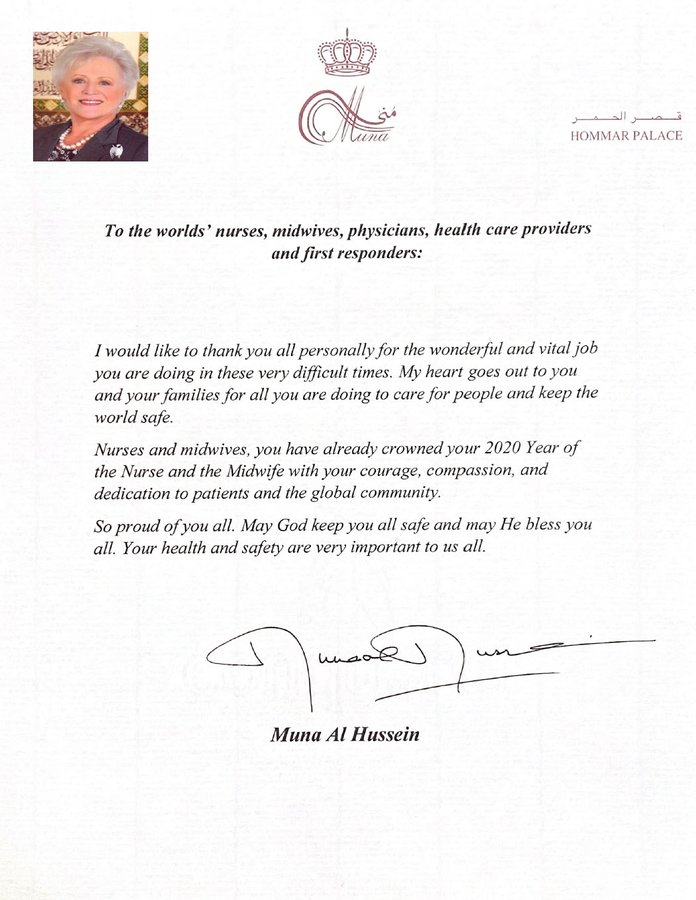 منى
Muna
قصر الحمر
HOMMAR PALACE
To the worlds' nurses, midwives, physicians, health care providers
and first responders:
I would like to thank you all personally for the wonderful and vital job
you are doing in these very difficult times. My heart goes out to you
and your families for all you are doing to care for people and keep the
world safe.
Nurses and midwives, you have already crowned your 2020 Year of
the Nurse and the Midwife with your courage, compassion, and
dedication to patients and the global community.
So proud of you all. May God keep you all safe and may He bless you
all. Your health and safety are very important to us all.
Muna Al Hussein
Muna Al Hussein